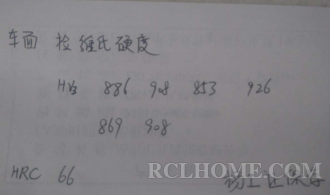 车面 检维氏硬度
HV 886 908 853 926
869 908
HRC 66
RCLHOME.COM